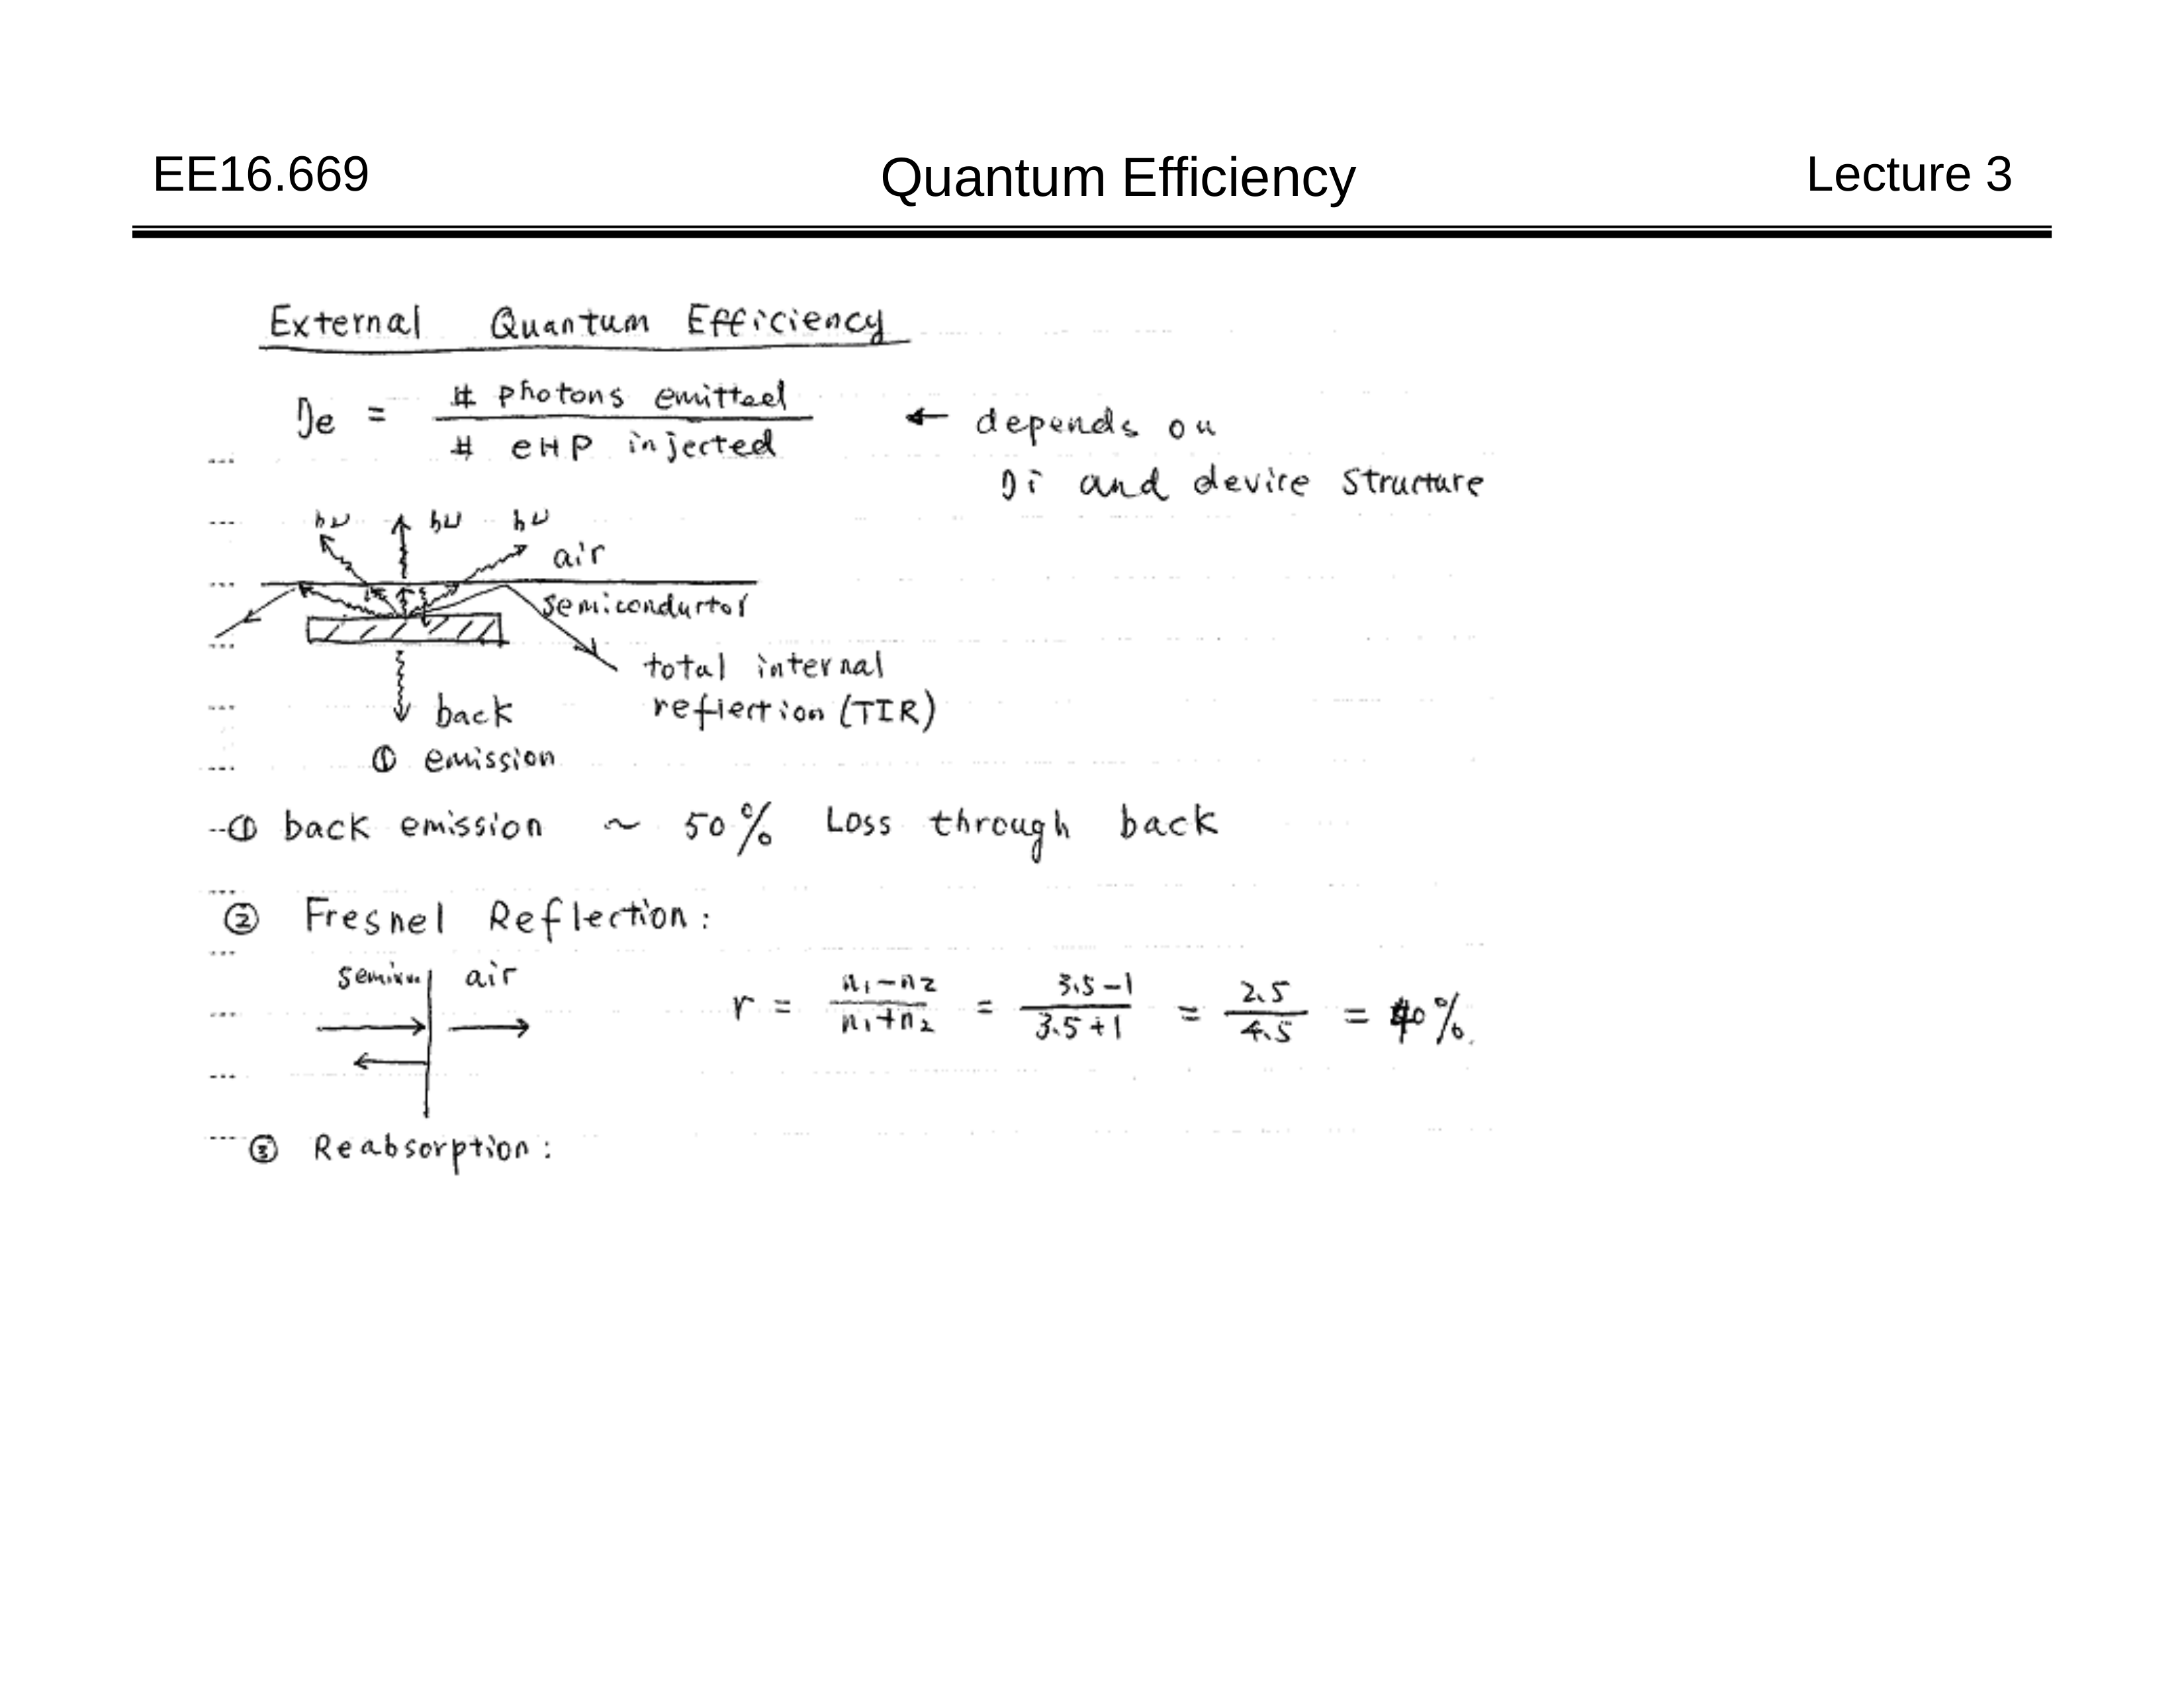 EE16.669 Quantum Efficiency Lecture 3
External Quantum Efficiency
ηe = # photons emitted / # eHP injected ← depends on
ηi and device structure
hν hν hν
air
semiconductor
total internal
reflection (TIR)
back
① emission
① back emission ~ 50% Loss through back
② Fresnel Reflection:
air
r = n1-n2 / n1+n2 = 3.5-1 / 3.5+1 = 2.5 / 4.5 = 40%
③ Reabsorption: